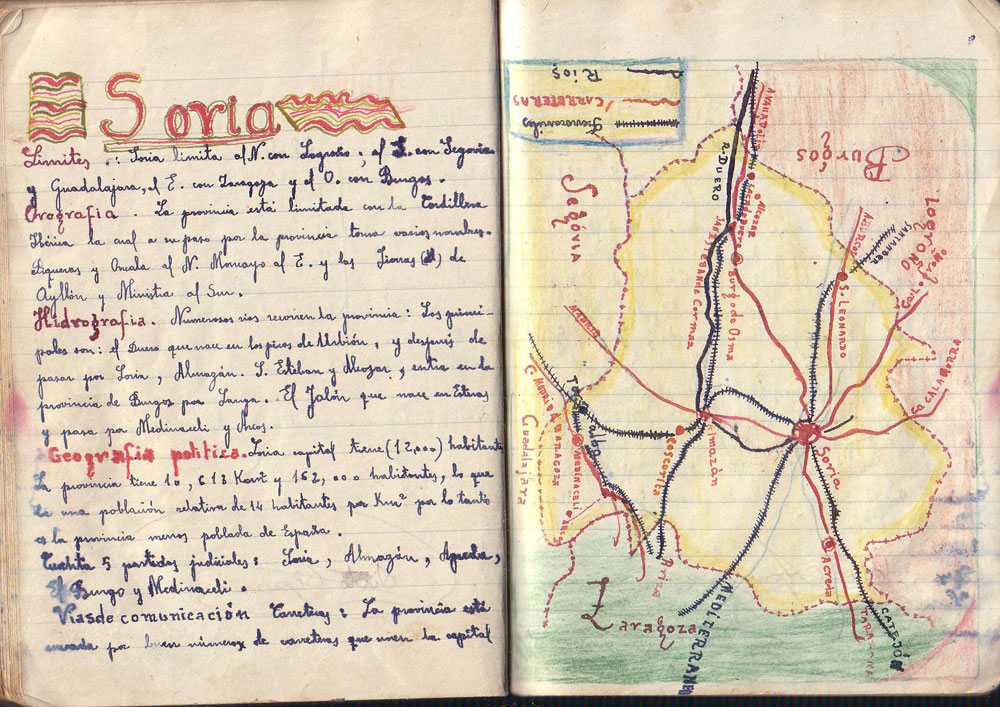 Soria
Limites .: Soria limita al N. con Logroño ; al S. con Segovia
y Guadalajara, al E. con Zaragoza y el O. con Burgos.
Orografia . La provincia está limitada con la Cordillera
Ibérica la cual a su paso por la provincia toma varios nombres.
Piqueras y Oncala al N. Moncayo al E. y las Sierras de
Ayllón y Ministra al Sur.
Hidrografia. Numerosos rios recorren la provincia : Los princi-
pales son: el Duero que nace en los picos de Urbión, y después de
pasar por Soria, Almazán. S. Esteban y Alcozar, entra en la
provincia de Burgos por Langa. El Jalón que nace en Esteras
y pasa por Medinaceli y Arcos.
Geografia politica. Soria capital tiene (12,000) habitantes
La provincia tiene 10,618 Km² y 162,000 habitantes, lo que
da una población relativa de 14 habitantes por Km² por lo tanto
es la provincia menos poblada de España.
5 partidos judiciales: Soria, Almazán, Agreda,
El Burgo y Medinaceli.
Vias de comunicación Carreteras: La provincia está
cruzada por buen número de carreteras que unen la capital
Rios
CARRETERAS
Ferrocarriles
Burgos
Segóvia
Logroño
Guadalajara
Zaragoza
R. DUERO
A VALLADOLID
Langa de Duero
Alcozar
SAN ESTEBAN DE Gormaz
Burgo de Osma
S. LEONARDO
A BURGOS
SANTANDER
A LOGROÑO
A CALAHORRA
MADRID
C. MADRID A ZARAGOZA
Torralba
MEDINACELI
Coscurita
Almazán
Soria
Ariza
AGREDA
TARAZONA
CASTEJÓN
MEDITERRANEO